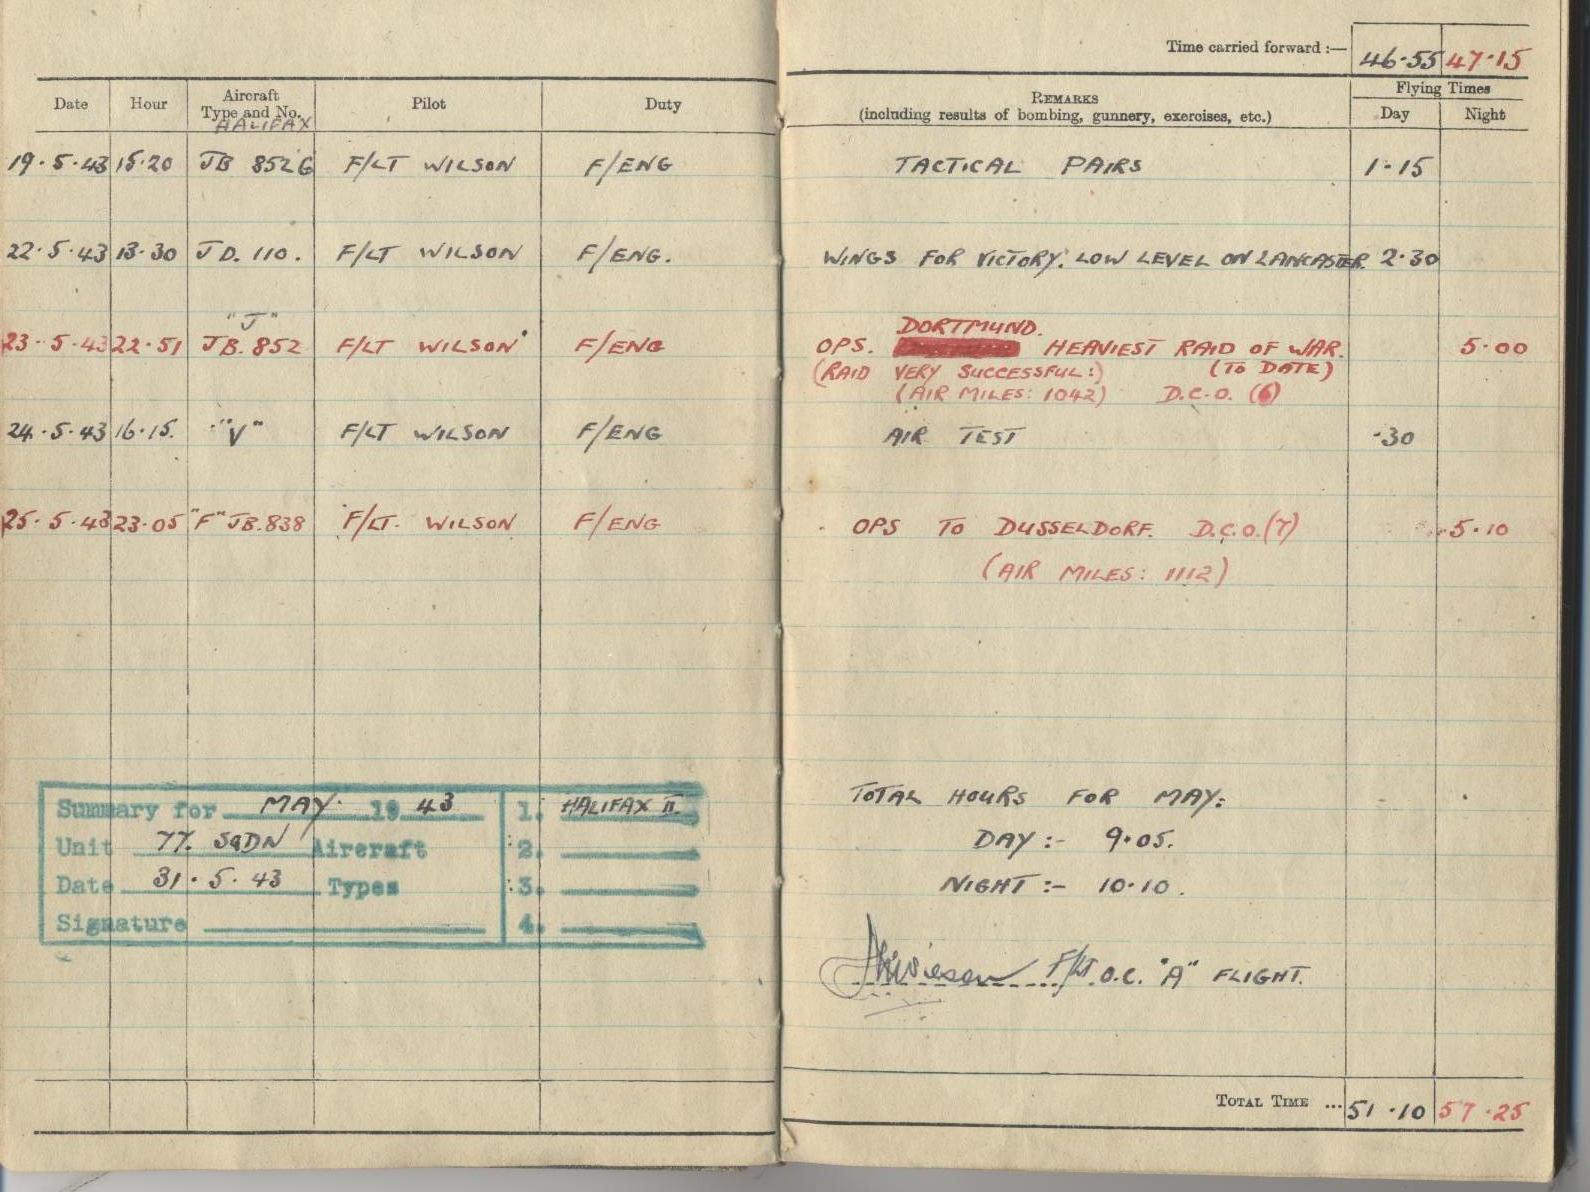 Time carried forward :— 46·55 47·15
Date Hour Aircraft Type and No. Pilot Duty REMARKS (including results of bombing, gunnery, exercises, etc.) Flying Times Day Night
HALIFAX
19·5·43 15·20 JB 852 G F/LT WILSON F/ENG TACTICAL PAIRS 1·15
22·5·43 13·30 JD. 110. F/LT WILSON F/ENG. WINGS FOR VICTORY. LOW LEVEL ON LANCASTER. 2·30
"J" DORTMUND.
23·5·43 22·51 JB. 852 F/LT WILSON F/ENG OPS. HEAVIEST RAID OF WAR. 5·00
(RAID VERY SUCCESSFUL:) (TO DATE)
(AIR MILES: 1042) D.C.O. (6)
24·5·43 16·15. "V" F/LT WILSON F/ENG AIR TEST ·30
25·5·43 23·05 "F" JB.838 F/LT. WILSON F/ENG OPS TO DUSSELDORF. D.C.O.(7) 5·10
(AIR MILES: 1112)
Summary for MAY· 19 43 1. HALIFAX II
Unit 77. SQDN Aircraft 2.
Date 31·5·43 Types 3.
Signature 4.
TOTAL HOURS FOR MAY:
DAY :- 9·05.
NIGHT :- 10·10.
F/Lt O.C. "A" FLIGHT.
TOTAL TIME ... 51·10 57·25